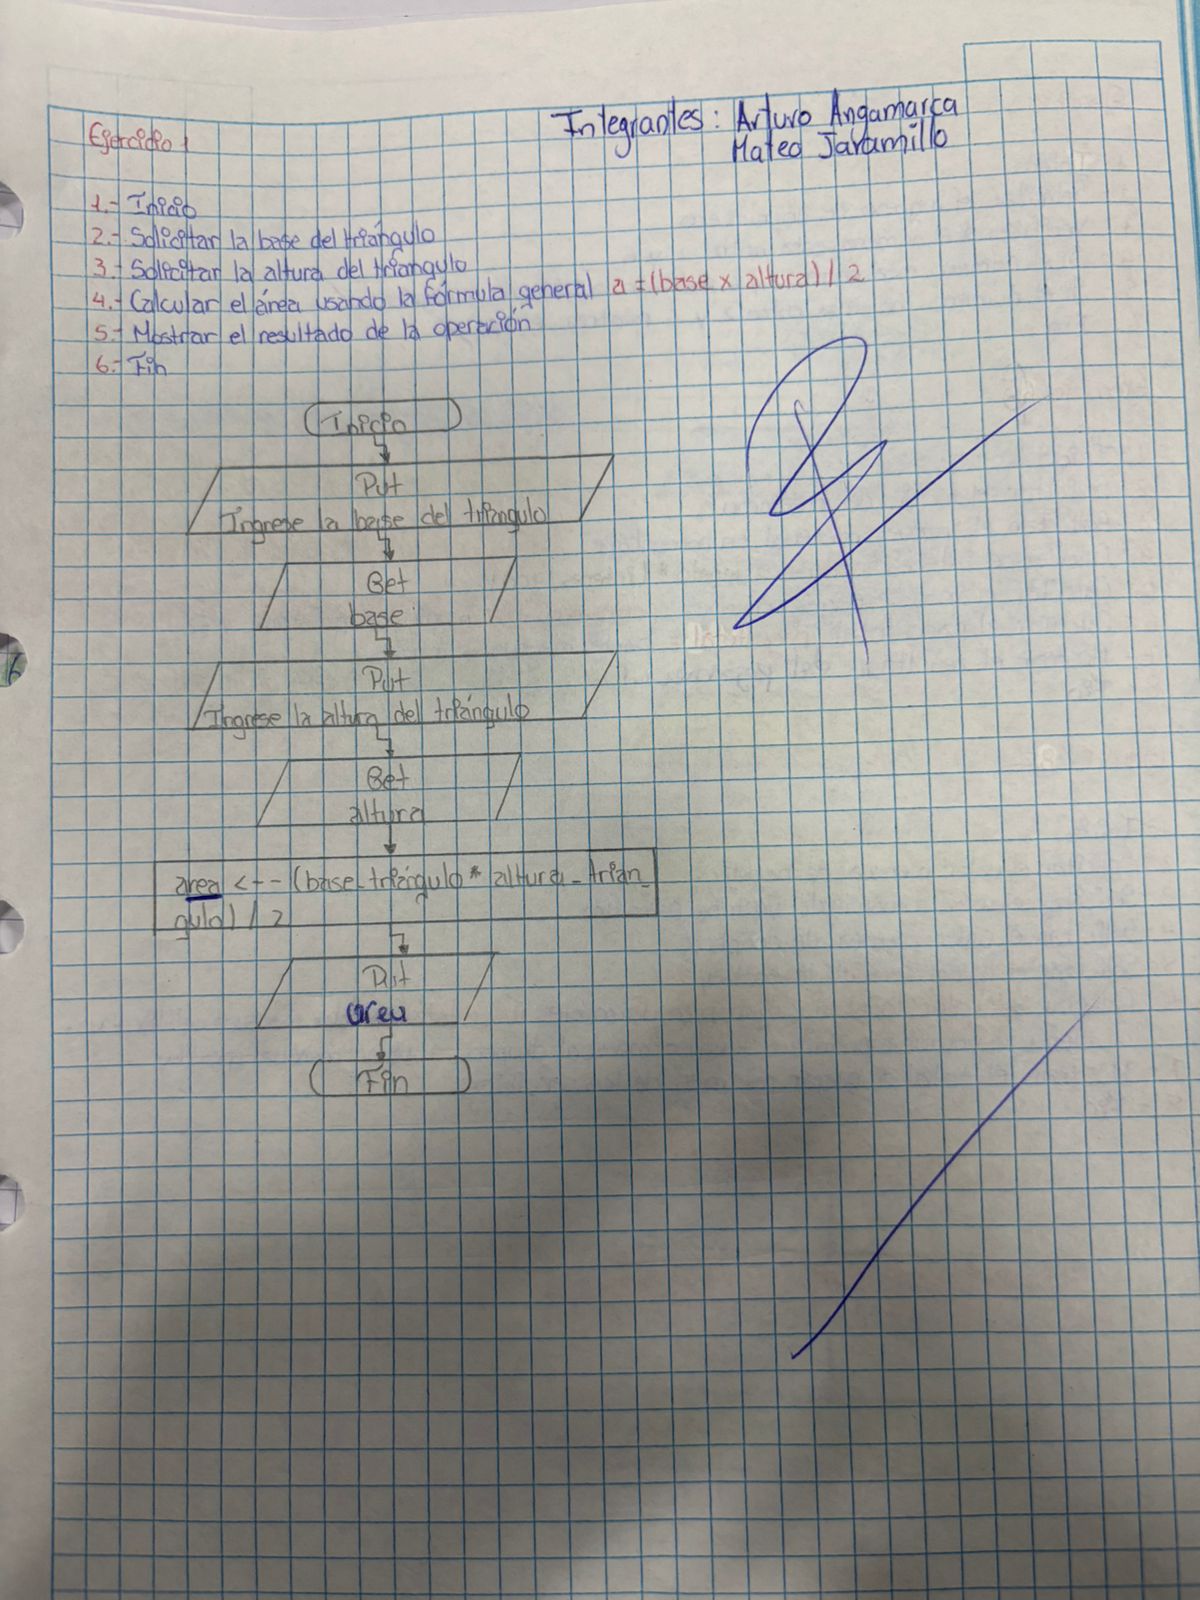 Ejercicio 1
Integrantes: Arturo Angamarca
Mateo Jaramillo
1.- Inicio
2.- Solicitar la base del triángulo
3.- Solicitar la altura del triangulo
4.- Calcular el área usando la fórmula general a = (base x altura) / 2
5.- Mostrar el resultado de la operación
6.- Fin
Inicio
Put
Ingrese la base del triángulo
Get
base
Put
Ingrese la altura del triángulo
Get
altura
area <-- (base_triángulo * altura_trian_
gulo) / 2
Put
area
Fin